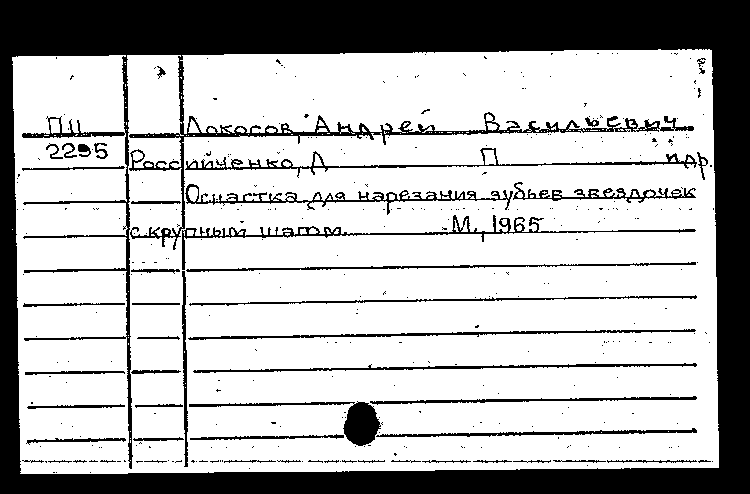 ПЦ Локосов, Андрей Васильевич
2295 Российченко, Д П идр.
Оснастка для нарезания зубьев звездочек
с крупным шагом. М., 1965